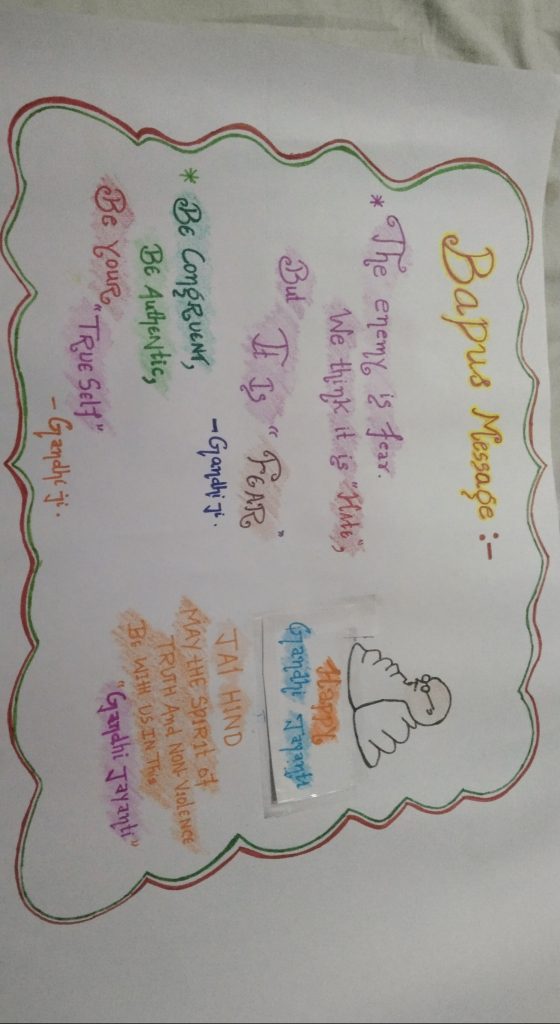 Bapus Message :-
* The enemy is fear.
We think it is "Hate",
But It Is "FEAR"
- Gandhi ji.
* Be Congruent,
Be Authentic,
Be Your "True Self"
- Gandhi ji.
Happy
Gandhi Jayanti
JAI HIND
MAY THE SPIRIT of
TRUTH And NON-VIOLENCE
BE WITH US IN THIS
"Gandhi Jayanti"